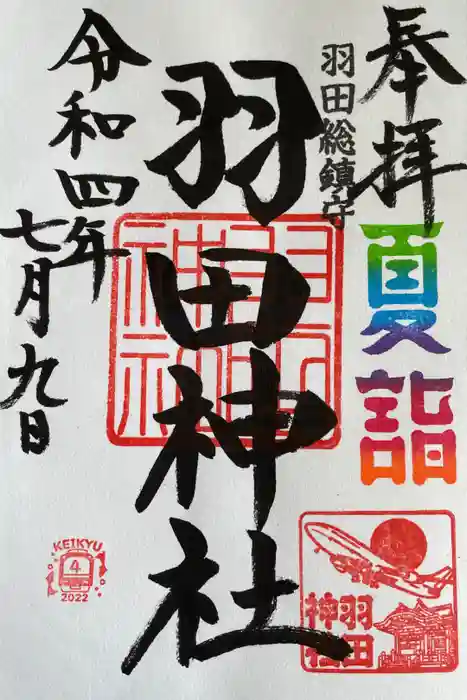 奉拝
夏詣
羽田総鎮守
羽田神社
羽田
神社
令和四年
七月九日
羽田
神社
KEIKYU
4
2022